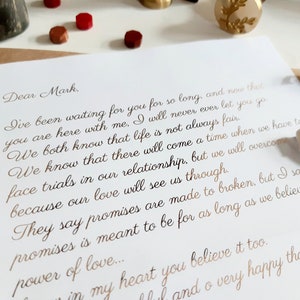 Dear Mark,
I've been waiting for you for so long, and now that
you are here with me, I will never ever let you go.
We both know that life is not always fair.
We know that there will come a time when we have to
face trials in our relationship, but we will overcome
because our love will see us through.
They say promises are made to broken, but I say
promises is meant to be for as long as we believe
power of love...
in my heart you believe it too.
and o very happy tha